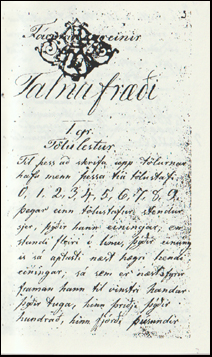 3
Talnafræði
1. gr.
Tölulestur.
Til þess að skrifa upp tölurnar
hafa menn þessa tíu tölustafi
0, 1, 2, 3, 4, 5, 6, 7, 8, 9.
þegar einn tölustafur stendur
sjer, þýðir hann einingar, en
standi fleiri í línu, þýðir einung
is sá aptasti næst hægri hendi
einingar, sá sem er næstfyrir
framan hann til vinstri handar
þýðir tuga, hinn þriðji þýðir
hundruð, hinn fjórði þúsundir